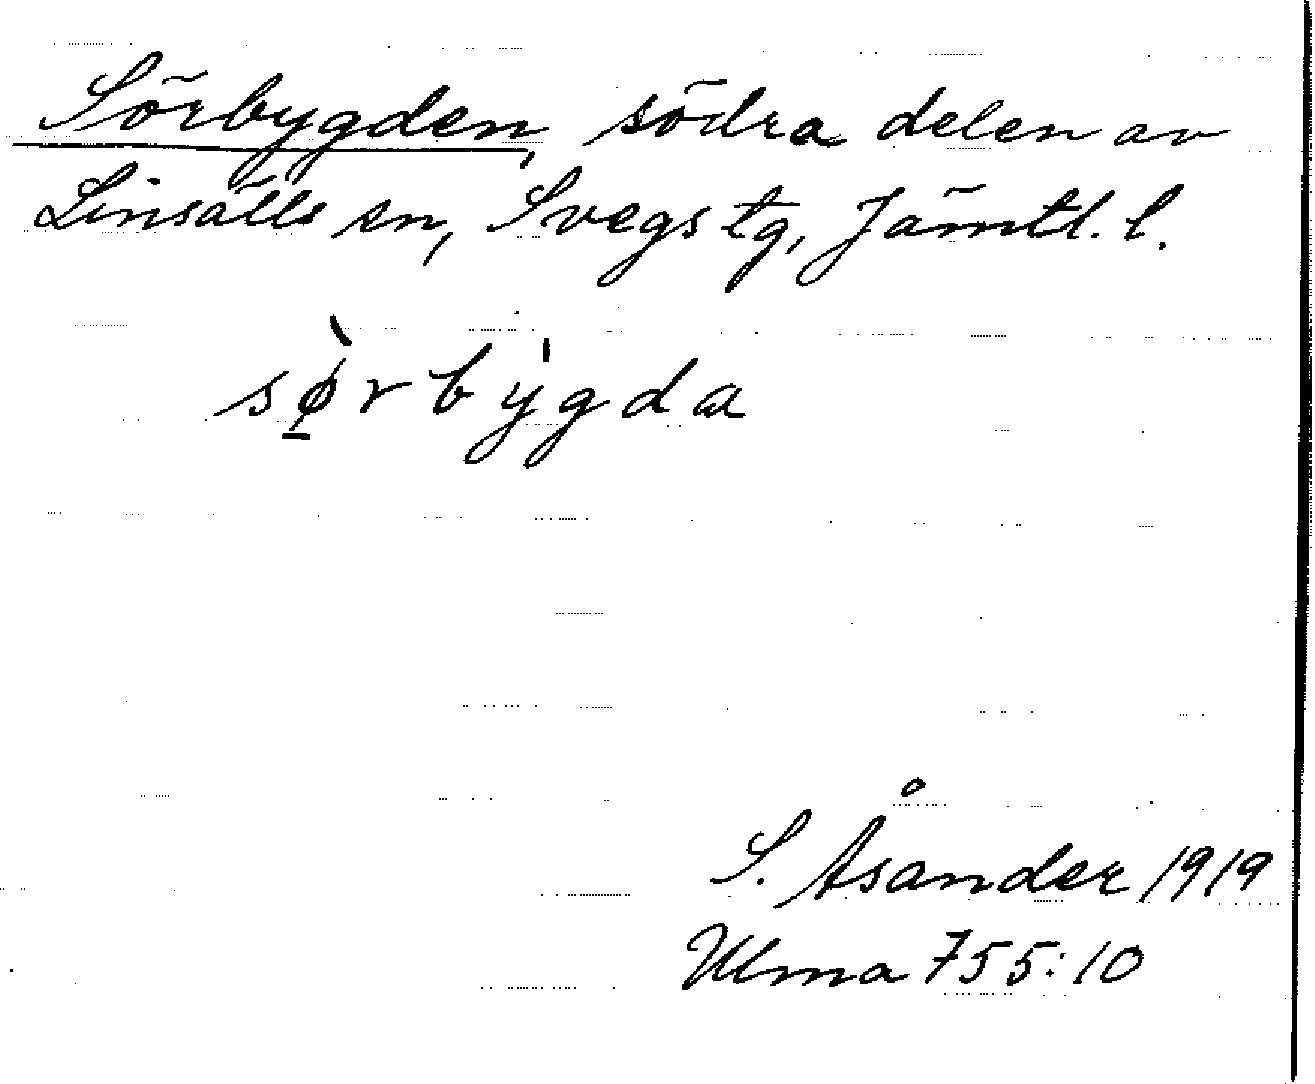 Sörbygden, södra delen av
Linsälls sn, Svegs tg, Jämtl. l.
sø̱̀rby̍gda
S. Åsander 1919
Ulma 755:10